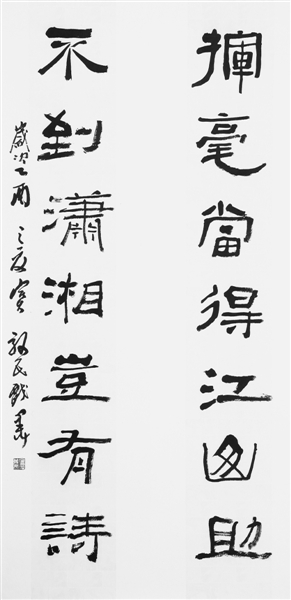 揮毫當得江山助
不到瀟湘豈有詩
歲次乙酉之夏